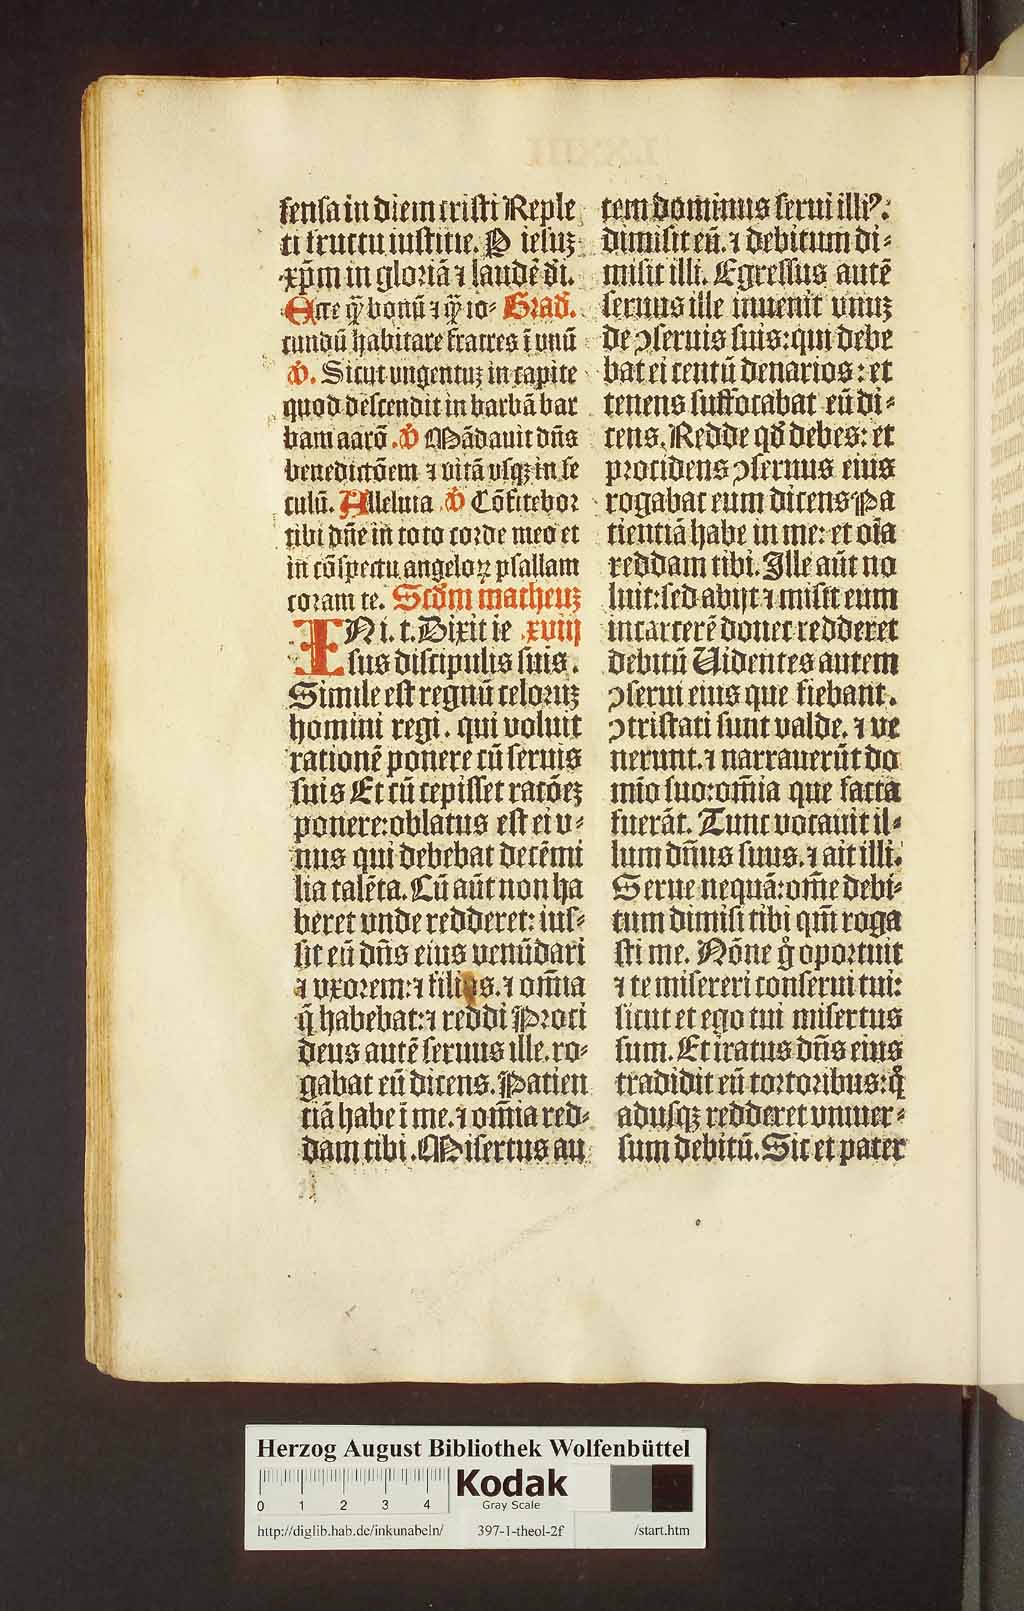 fensa in diem cristi Reple
ti fructu iustitie. P iesuʒ
xp̄m in gloriā ⁊ laudē d̄i.
Ecce q̄ bonū ⁊ q̄ io- Grad̄.
cundū habitare fratres ī unū
℣. Sicut ungentuʒ in capite
quod descendit in barbā bar
bam aarō. ℣ Mādauit dn̄s
benedictōem ⁊ uitā vsqʒ in se
culū. Alleluia ℣ Cōfitebor
tibi dn̄e in toto corde meo et
in cōspectu angeloꝝ psallam
coram te. Scd̄m matheuʒ
IN i. t. Dixit ie .xviij
sus discipulis suis.
Simile est regnū celoruʒ
homini regi. qui uoluit
rationē ponere cū seruis
suis Et cū cepisset ratōeʒ
ponere: oblatus est ei v-
nus qui debebat decē mi
lia talēta. Cū aūt non ha
beret vnde redderet: ius-
sit eū dn̄s eius uenūdari
⁊ vxorem: ⁊ filios. ⁊ omīa
q̄ habebat: ⁊ reddi Proci
deus autē seruus ille. ro-
gabat eū dicens. Patien
tiā habe ī me. ⁊ omīa red-
dam tibi. Misertus au
tem dominus serui illiꝰ:
dimisit eū. ⁊ debitum di-
misit illi. Egressus autē
seruus ille inuenit vnuʒ
de ↄseruis suis: qui debe
bat ei centū denarios: et
tenens suffocabat eū di-
cens. Redde qd̄ debes: et
procidens ↄseruus eius
rogabat eum dicens Pa
tientiā habe in me: et oīa
reddam tibi. Ille aūt no
luit: sed abijt ⁊ misit eum
in carcerē donec redderet
debitū Uidentes autem
ↄserui eius que fiebant.
ↄtristati sunt ualde. ⁊ ue
nerunt. ⁊ narrauerūt do
mīo suo: omīa que facta
fuerāt. Tunc uocauit il-
lum dn̄us suus. ⁊ ait illi.
Serue nequā: om̄e debi-
tum dimisi tibi qm̄ roga
sti me. Nōne gͦ oportuit
⁊ te misereri conserui tui:
sicut et ego tui misertus
sum. Et iratus dn̄s eius
tradidit eū tortoribus: qͦ
adusqʒ redderet vniuer-
sum debitū. Sic et pater
Herzog August Bibliothek Wolfenbüttel
0 1 2 3 4
Kodak
Gray Scale
http://diglib.hab.de/inkunabeln/ 397-1-theol-2f /start.htm